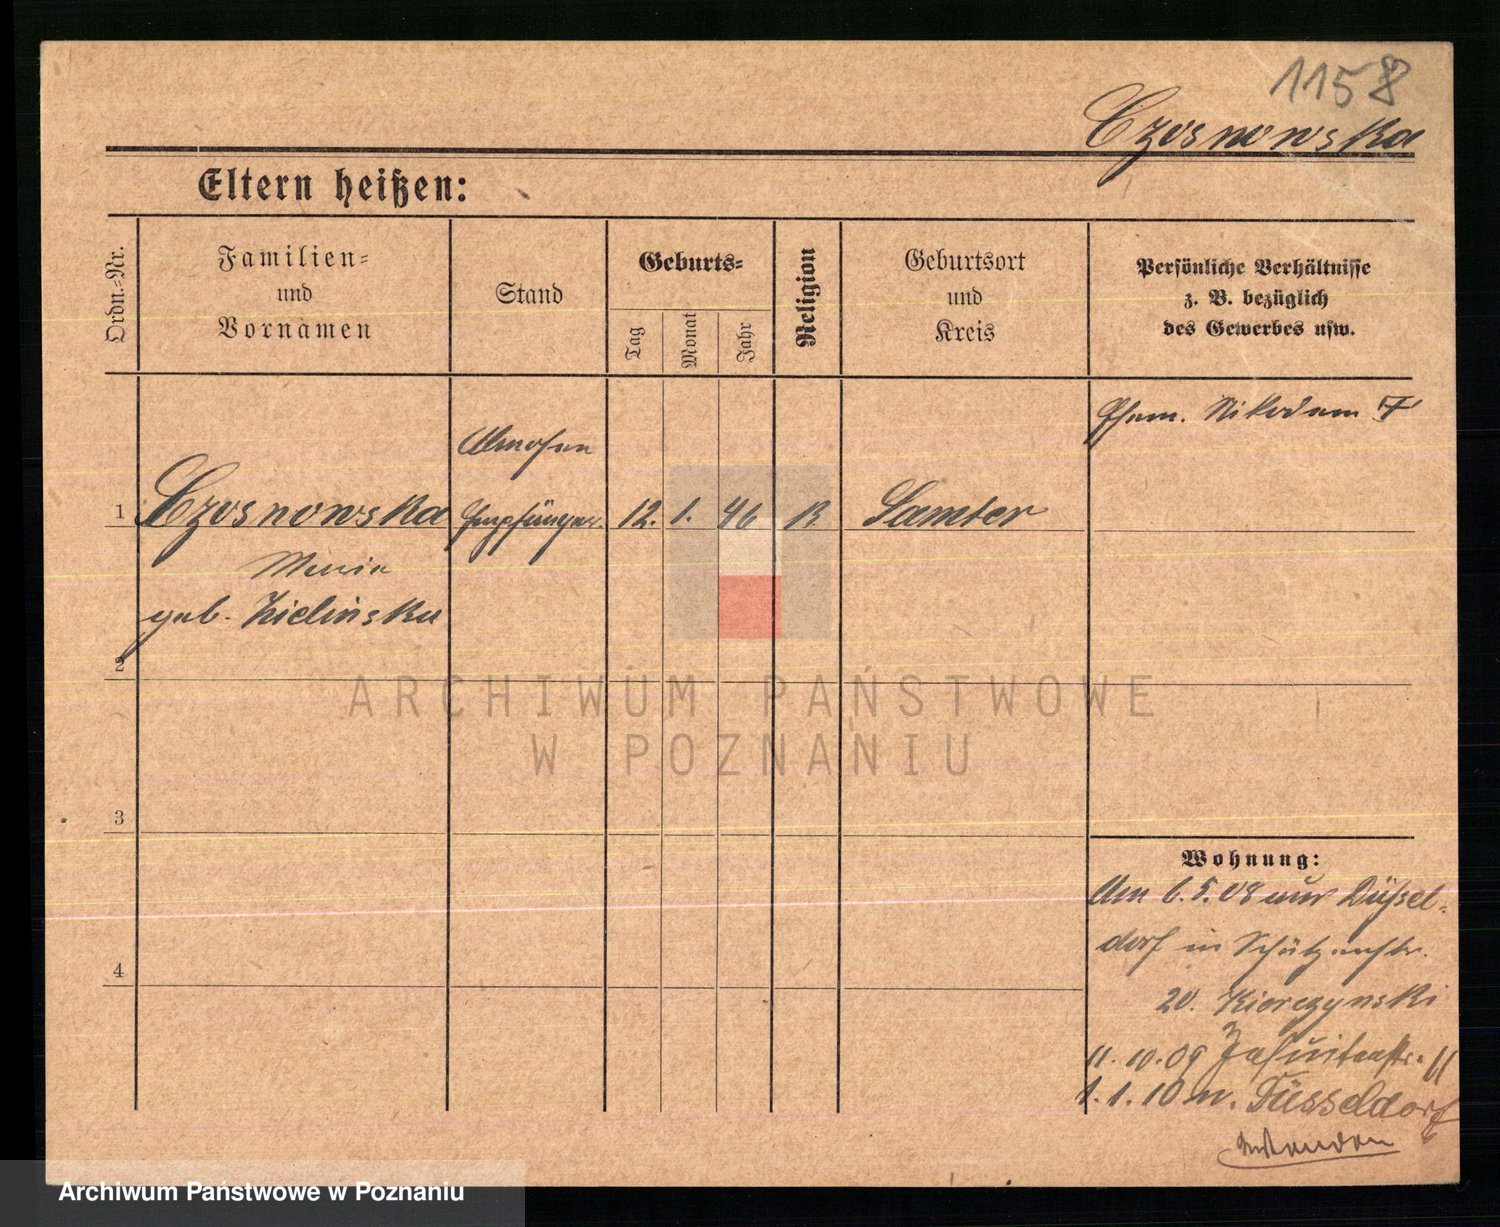 1158
Czosnowska
Eltern heißen:
Ordn.-Nr.
Familien-
und
Vornamen
Stand
Geburts-
Tag
Monat
Jahr
Religion
Geburtsort
und
Kreis
Persönliche Verhältnisse
z. B. bezüglich
des Gewerbes usw.
Ehem. Nikodem
Almosen
1 Czosnowska Empfänger 12. 1. 46 R Samter
Maria
geb. Zielinska
2
ARCHIWUM PAŃSTWOWE
W POZNANIU
3
4
Wohnung:
Am 6.5.08 aus Düssel-
dorf in Schützenstr.
20. Kierczynski
11.10.09 Jesuitenstr. 11
1.1.10 n. Düsseldorf
Archiwum Państwowe w Poznaniu